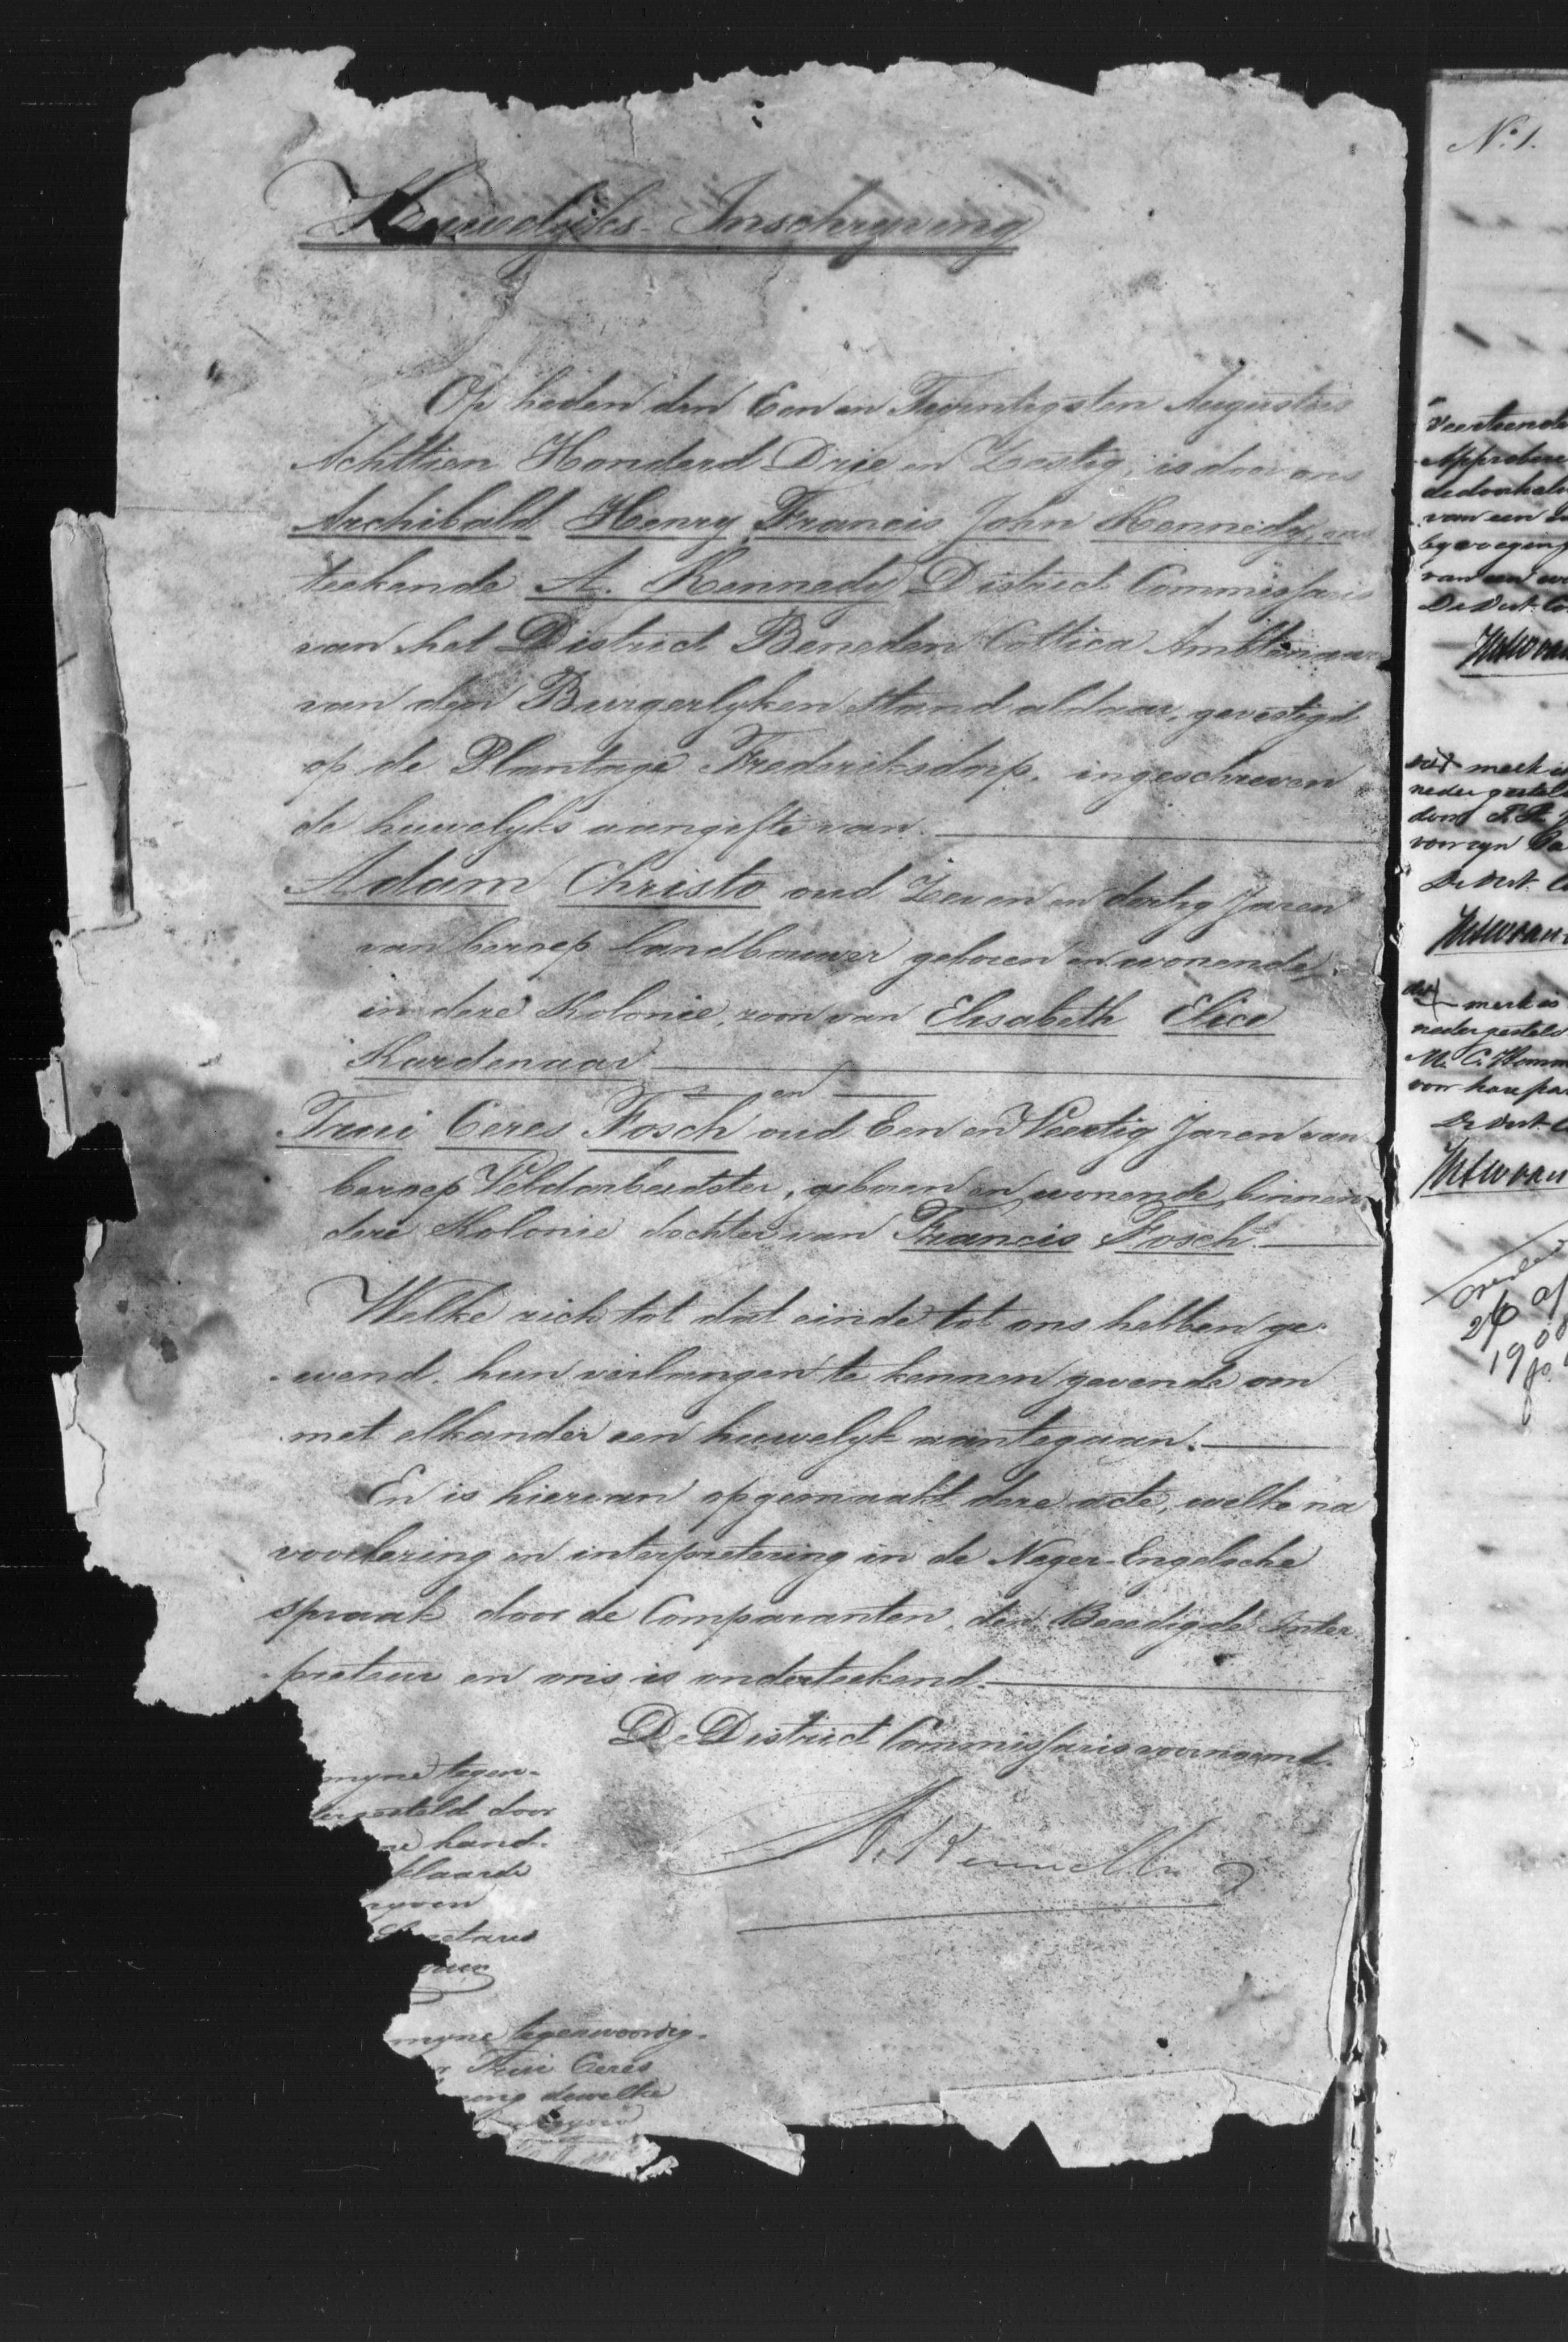 Huwelijks-Inschryving
Op heden den Een en Twintigsten Augustus
Achttien Honderd Drie en Zestig, is door ons
Archibald Henry Francis John Kennedy, 
teekende A. Kennedy District Commissaris
van het District Beneden Cottica Ambtenaar
van den Burgerlyken Stand aldaar, gevestigd
op de Plantage Frederiksdorp, ingeschreven
de huwelyks aangifte van.
Adam Christo oud Zeven en dertig Jaren
van beroep landbouwer geboren en wonende
in deze Kolonie, zoon van Elisabeth Elice
Kardenaar
en
Trui Ceres Fosch oud Een en Veertig Jaren van
beroep Veldarbeidster, geboren en wonende binnen
deze Kolonie dochter van Francis Fosch.
Welke zich tot dat einde tot ons hebben ge-
wend, hun verlangen te kennen gevende om
met elkander een huwelyk aantegaan.
En is hiervan opgemaakt deze acte, welke na
voorlezing en interpretering in de Neger-Engelsche
spraak door de Comparanten, den Beeedigde Inter
preteur en ons is onderteekend.
De District Commissaris voornoemd.
A. Kennedy
myne tegen-
gesteld door
hand-
klaarde
myne tegenwoordig-
Trui Ceres
dewelke
No. 1.
merk is
door
voor zyn
merk is
nedergesteld
M. C.
voor hare